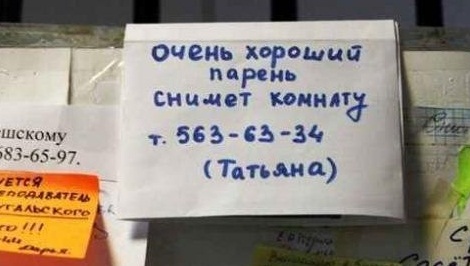 очень хороший
парень
снимет комнату
т. 563-63-34
(Татьяна)
ешскому
583-65-97.
УЕТСЯ
ЕПОДАВАТЕЛЬ
УГАЛЬСКОГО
ТО!!!